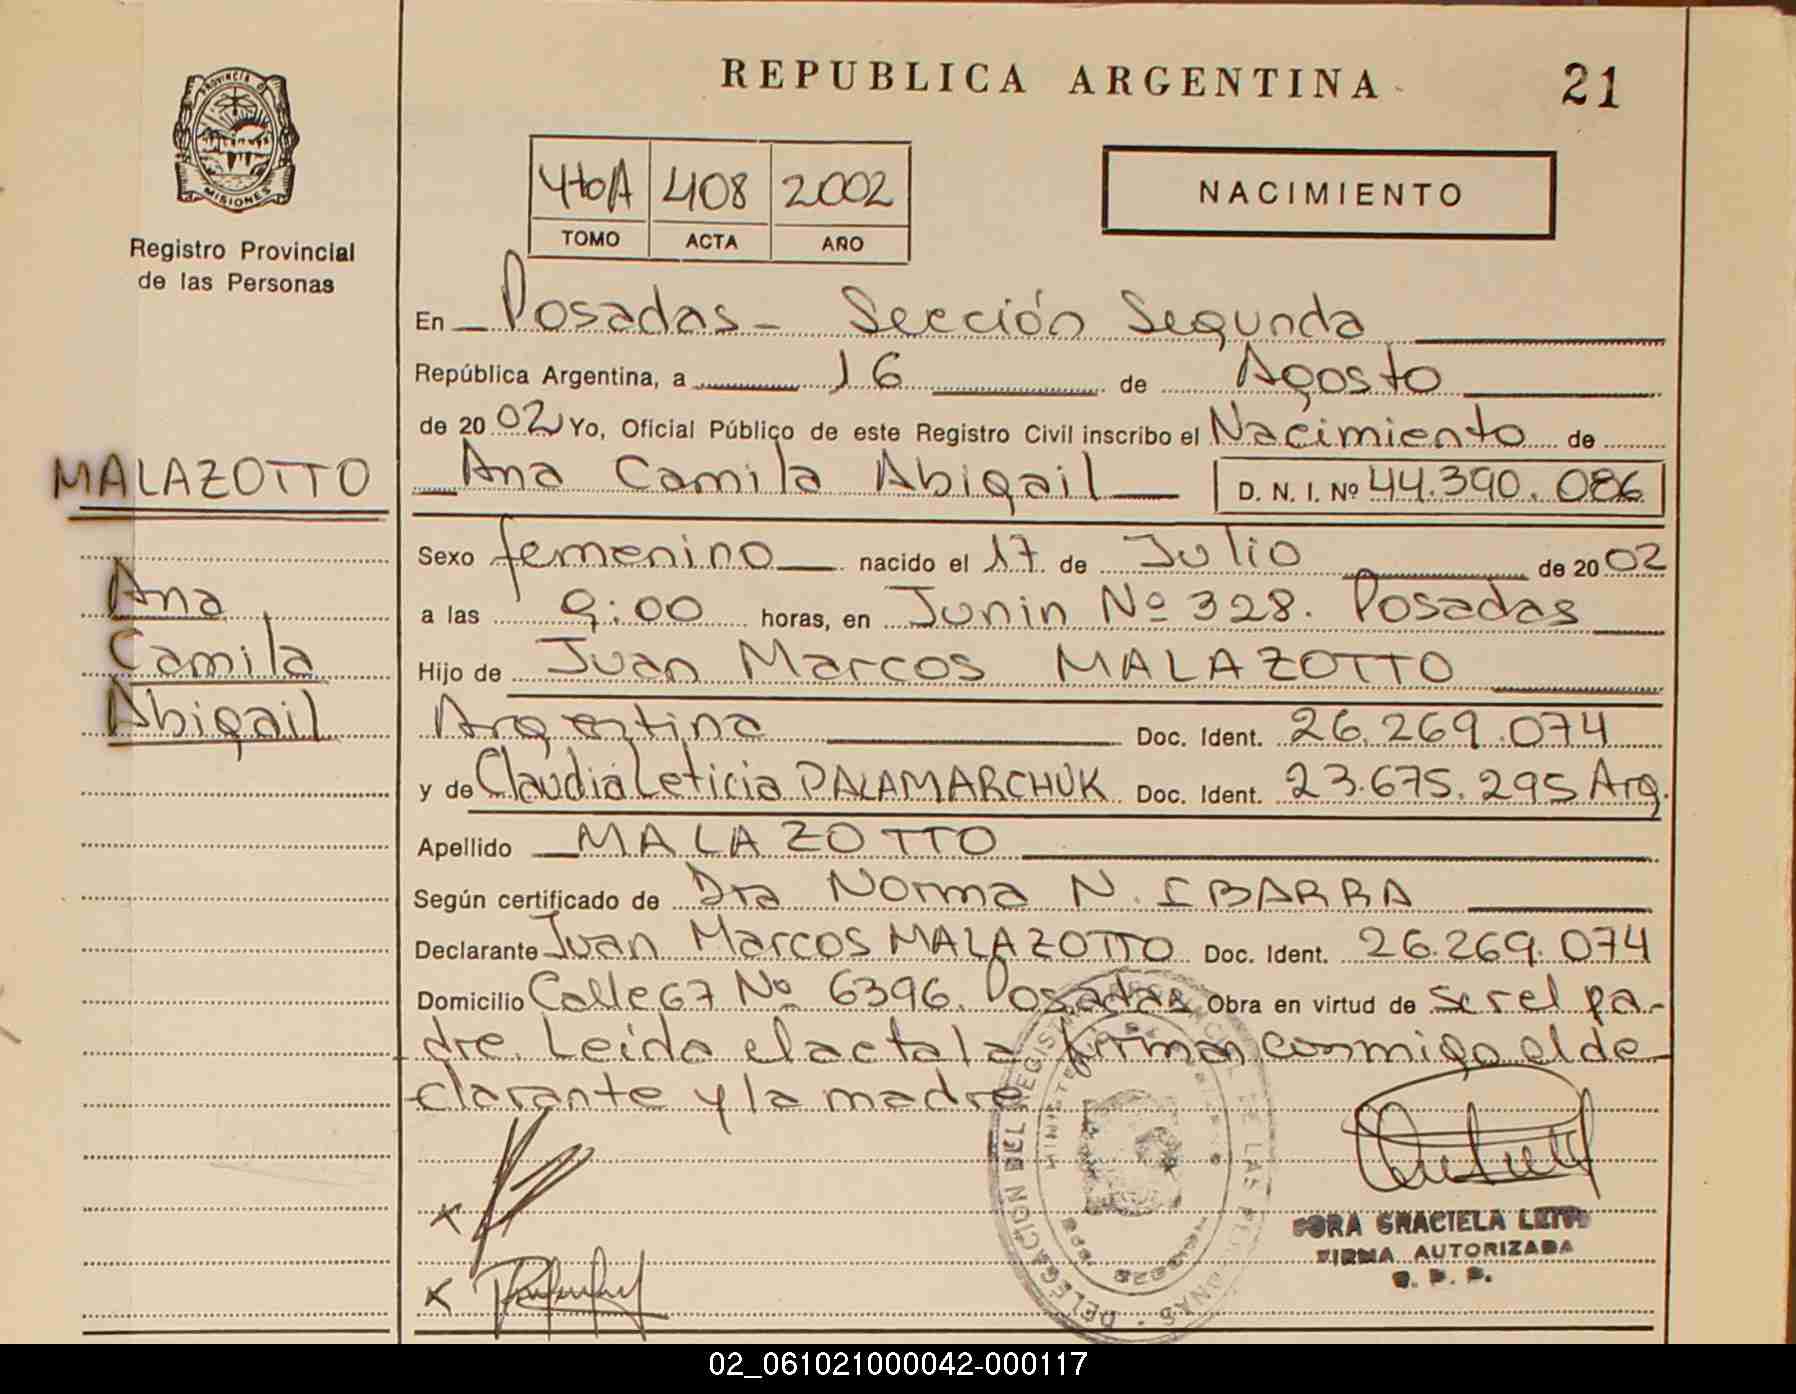 REPUBLICA ARGENTINA
21
PROVINCIA DE
MISIONES
Registro Provincial
de las Personas
4toA 408 2002
TOMO ACTA AÑO
NACIMIENTO
En Posadas - Sección Segunda
República Argentina, a 16 de Agosto
de 2002 Yo, Oficial Público de este Registro Civil inscribo el Nacimiento de
Ana Camila Abigail D. N. I. Nº 44.390.086
MALAZOTTO
Ana
Camila
Abigail
Sexo femenino nacido el 17 de Julio de 2002
a las 9:00 horas, en Junin Nº 328. Posadas
Hijo de Juan Marcos MALAZOTTO
Argentina Doc. Ident. 26.269.074
y de Claudia Leticia PALAMARCHUK Doc. Ident. 23.675.295 Arg.
Apellido MALAZOTTO
Según certificado de Dra Norma N. IBARRA
Declarante Juan Marcos MALAZOTTO Doc. Ident. 26.269.074
Domicilio Calle 67 Nº 6396. Posadas Obra en virtud de ser el pa-
dre. Leida el acta la firman conmigo el de
clarante y la madre
DELEGACION DEL REGISTRO DE LAS PERSONAS
GRACIELA
FIRMA AUTORIZADA
02_061021000042-000117